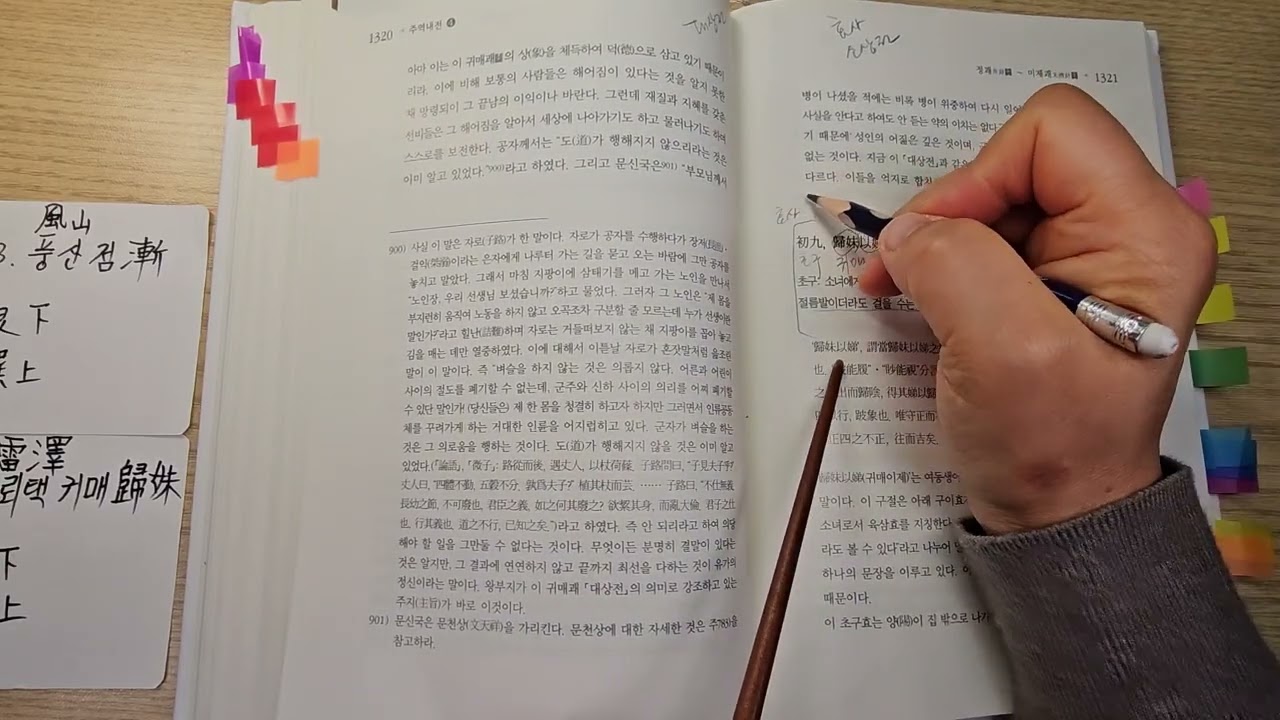 風山
3. 풍산점 漸
艮下
巽上
雷澤
뢰택 귀매 歸妹
下
上
1320 주역내전 ❹
대상전
아마 이는 이 귀매괘의 상(象)을 체득하여 덕(德)으로 삼고 있기 때문이
리라. 이에 비해 보통의 사람들은 해어짐이 있다는 것을 알지 못한
채 망령되이 그 끝남의 이익이나 바란다. 그런데 재질과 지혜를 갖춘
선비들은 그 해어짐을 알아서 세상에 나아가기도 하고 물러나기도 하여
스스로를 보전한다. 공자께서는 “도(道)가 행해지지 않으리라는 것은
이미 알고 있었다.”900)라고 하였다. 그리고 문신국은901) “부모님께서
900) 사실 이 말은 자로(子路)가 한 말이다. 자로가 공자를 수행하다가 장저(長沮)·
걸익(桀溺)이라는 은자에게 나루터 가는 길을 묻고 오는 바람에 그만 공자를
놓치고 말았다. 그래서 마침 지팡이에 삼태기를 메고 가는 노인을 만나서
“노인장, 우리 선생님 보셨습니까?”하고 물었다. 그러자 그 노인은 “제 몸을
부지런히 움직여 노동을 하지 않고 오곡조차 구분할 줄 모르는데 누가 선생이란
말인가?”라고 힐난(詰難)하며 자로는 거들떠보지 않는 채 지팡이를 꼽아 놓고
김을 매는 데만 열중하였다. 이에 대해서 이튿날 자로가 혼잣말처럼 읊조린
말이 이 말이다. 즉 “벼슬을 하지 않는 것은 의롭지 않다. 어른과 어린이
사이의 절도를 폐기할 수 없는데, 군주와 신하 사이의 의리를 어찌 폐기할
수 있단 말인가! (당신들은) 제 한 몸을 청결히 하고자 하지만 그러면서 인류공동
체를 꾸려가게 하는 거대한 인륜을 어지럽히고 있다. 군자가 벼슬을 하는
것은 그 의로움을 행하는 것이다. 도(道)가 행해지지 않을 것은 이미 알고
있었다.(『論語』, 「微子」: 路從而後, 遇丈人, 以杖荷蓧, 子路問曰, “子見夫子乎?”
丈人曰, “四體不動, 五穀不分, 孰爲夫子?” 植其杖而芸. …… 子路曰, “不仕無義,
長幼之節, 不可廢也. 君臣之義, 如之何其廢之? 欲絜其身, 而亂大倫. 君子之仕
也, 行其義也. 道之不行, 已知之矣.”)라고 하였다. 즉 안 되리라고 하여 의당
해야 할 일을 그만둘 수 없다는 것이다. 무엇이든 분명히 결말이 있다는
것은 알지만, 그 결과에 연연하지 않고 끝까지 최선을 다하는 것이 유가의
정신이라는 말이다. 왕부지가 이 귀매괘 「대상전」의 의미로 강조하고 있는
주지(主旨)가 바로 이것이다.
901) 문신국은 문천상(文天祥)을 가리킨다. 문천상에 대한 자세한 것은 주785)을
참고하라.
효사
소상전
정괘 ~ 미제괘 1321
병이 나셨을 적에는 비록 병이 위중하여 다시
사실을 안다고 하여도 안 듣는 약의 이치는 없다
기 때문에 성인의 어짊은 깊은 것이며,
없는 것이다. 지금 이 「대상전」과 같은
다르다. 이들을 억지로 합치
효사
初九, 歸妹以娣
초구 귀매
초구: 소녀에게
절름발이더라도 걸을 수
‘歸妹以娣’, 謂當歸妹以娣之
也. 能履”·“眇能視”分
出而歸陰, 得其娣以歸
行, 跛象也. 唯守正而
正四之不正, 往而吉矣.
歸妹以娣(귀매이제)’는 여동생
말이다. 이 구절은 아래 구이효
소녀로서 육삼효를 지칭한다.
라도 볼 수 있다”라고 나누어
하나의 문장을 이루고 있다.
때문이다.
이 초구효는 양(陽)이 집 밖으로 나가